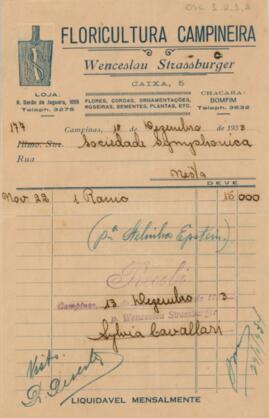 FLORICULTURA CAMPINEIRA
Wenceslau Strassburger
CAIXA, 5
LOJA:
R. Barão de Jaguara, 1085
Teleph. 3275
FLORES, COROAS, ORNAMENTAÇÕES,
ROSEIRAS, SEMENTES, PLANTAS, ETC.
CHACARA:
BOMFIM
Teleph. 3632
177
Campinas, Dezembro de 193
Illmo. Snr. Sociedade Symphonica
Rua
Nesta
DEVE
Nov. 22 1 Ramo 15 000
(pª Stelinha Epstein)
Recebi
Campinas, 13 Dezembro 3
p. Wenceslau Strassburger
Sylvia Cavallari
Visto
LIQUIDAVEL MENSALMENTE